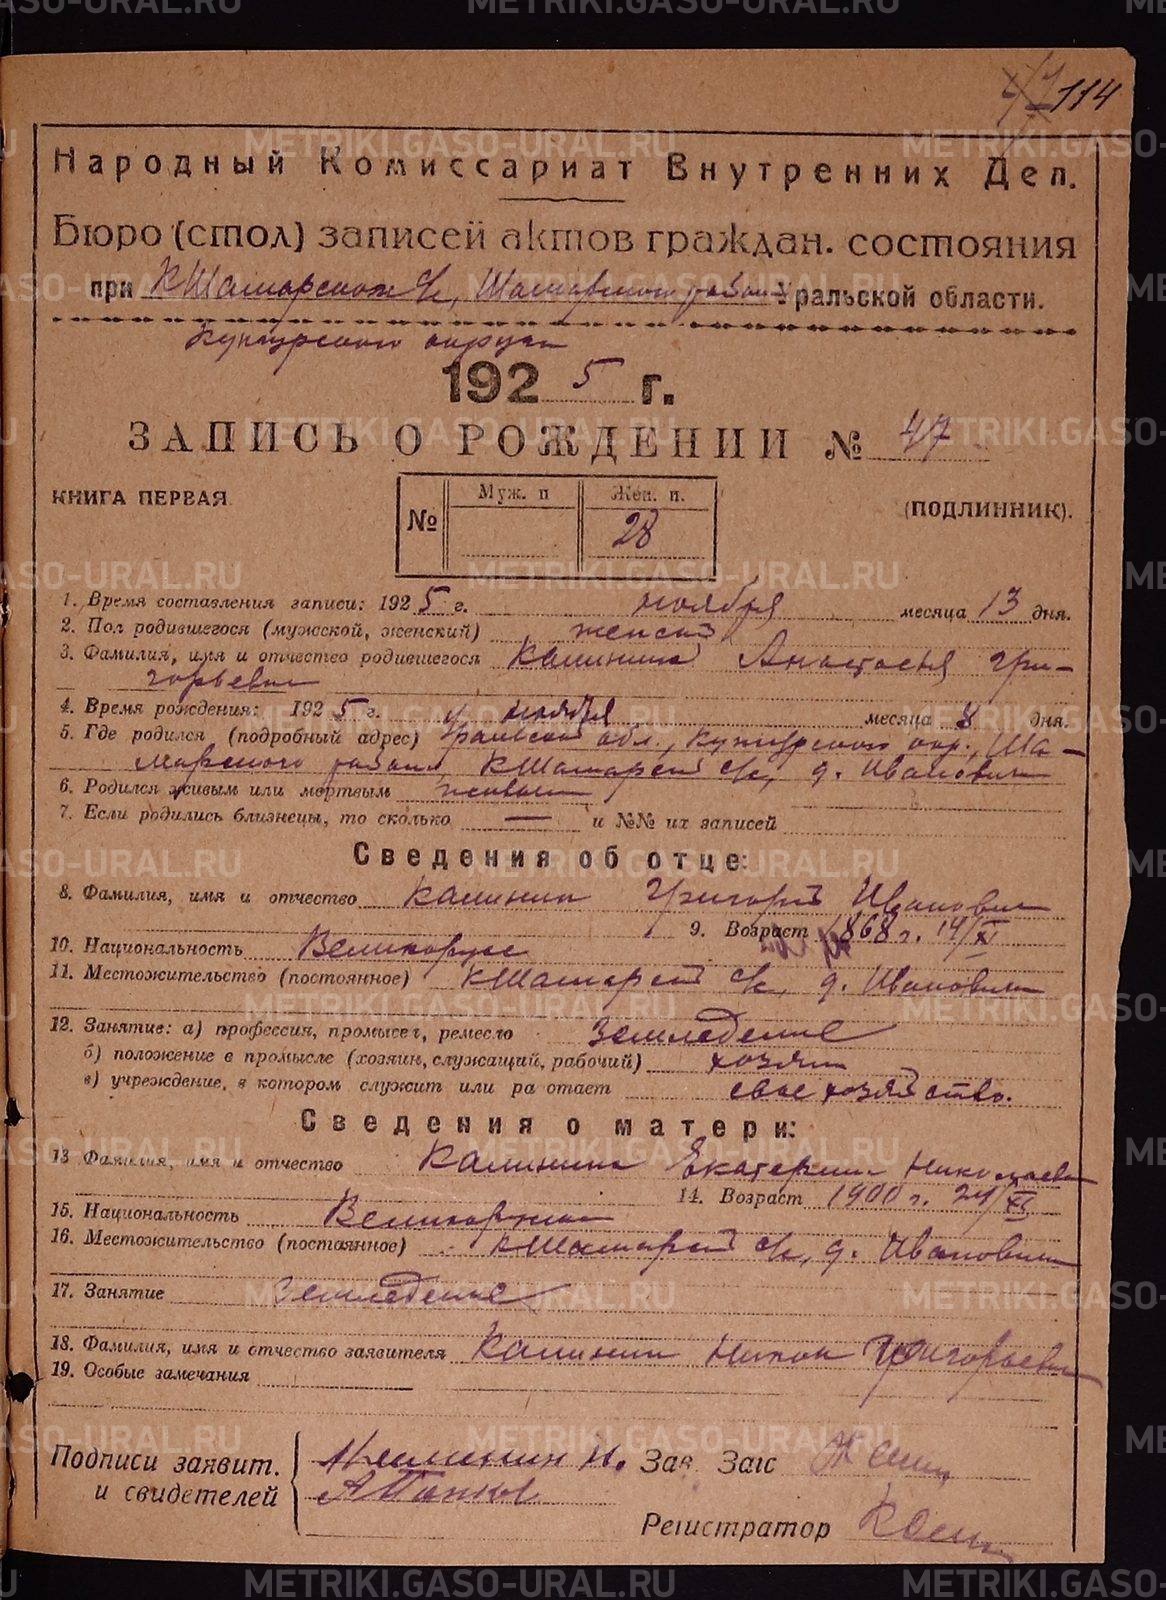 114
Народный Комиссариат Внутренних Дел.
Бюро (стол) записей актов граждан. состояния
при КШамарском с/с, Шамарского района Уральской области.
Кунгурского округа
1925 г.
ЗАПИСЬ О РОЖДЕНИИ № 47
КНИГА ПЕРВАЯ (ПОДЛИННИК).
№ Муж. п Жен. п.
28
1. Время составления записи: 1925 г. ноября месяца 13 дня.
2. Пол родившегося (мужской, женский) женский
3. Фамилия, имя и отчество родившегося Калинина Анастасья Гри-
горьевна
4. Время рождения: 1925 г. ноября месяца дня.
5. Где родился (подробный адрес) Уральской обл., Кунгурского окр., Ша-
марского района, КШамарский с/с, д. Ивановка
6. Родился живым или мертвым живым
7. Если родились близнецы, то сколько — и №№ их записей
Сведения об отце:
8. Фамилия, имя и отчество Калинин Григорий Иванович
9. Возраст 1868 г. 14/XI
10. Национальность Великорус
11. Местожительство (постоянное) КШамарский с/с, д. Ивановка
12. Занятие: а) профессия, промысел, ремесло Земледелие
б) положение в промысле (хозяин, служащий, рабочий) хозяин
в) учреждение, в котором служит или ра отает свое хозяйство.
Сведения о матери:
13 Фамилия, имя и отчество Калинина Екатерина Николаевна
14. Возраст 1900 г. 24/XI
15. Национальность Великорусска
16. Местожительство (постоянное) КШамарский с/с, д. Ивановка
17. Занятие Земледелие
18. Фамилия, имя и отчество заявителя Калинин Никон Григорьевич
19. Особые замечания
Подписи заявит. Калинин Н. Зав. Загс
и свидетелей
Регистратор
METRIKI.GASO-URAL.RU